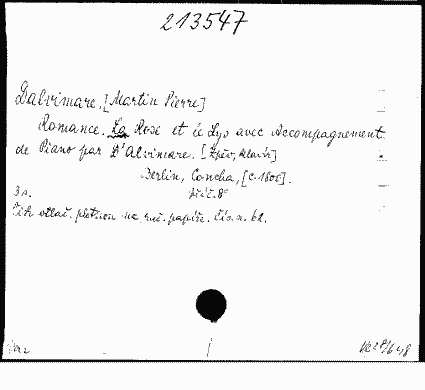 213547
Dalvimare, [Martin Pierre]
Romance. La Rose et le Lys avec Accompagnement
de Piano par D'Alvimare. [Zpěv, klavír]
Berlin, Concha, [c. 1805].
3 s. příč. 8°
Tisk otlač. plotnou na ruč. papíře. čís. n. 62.